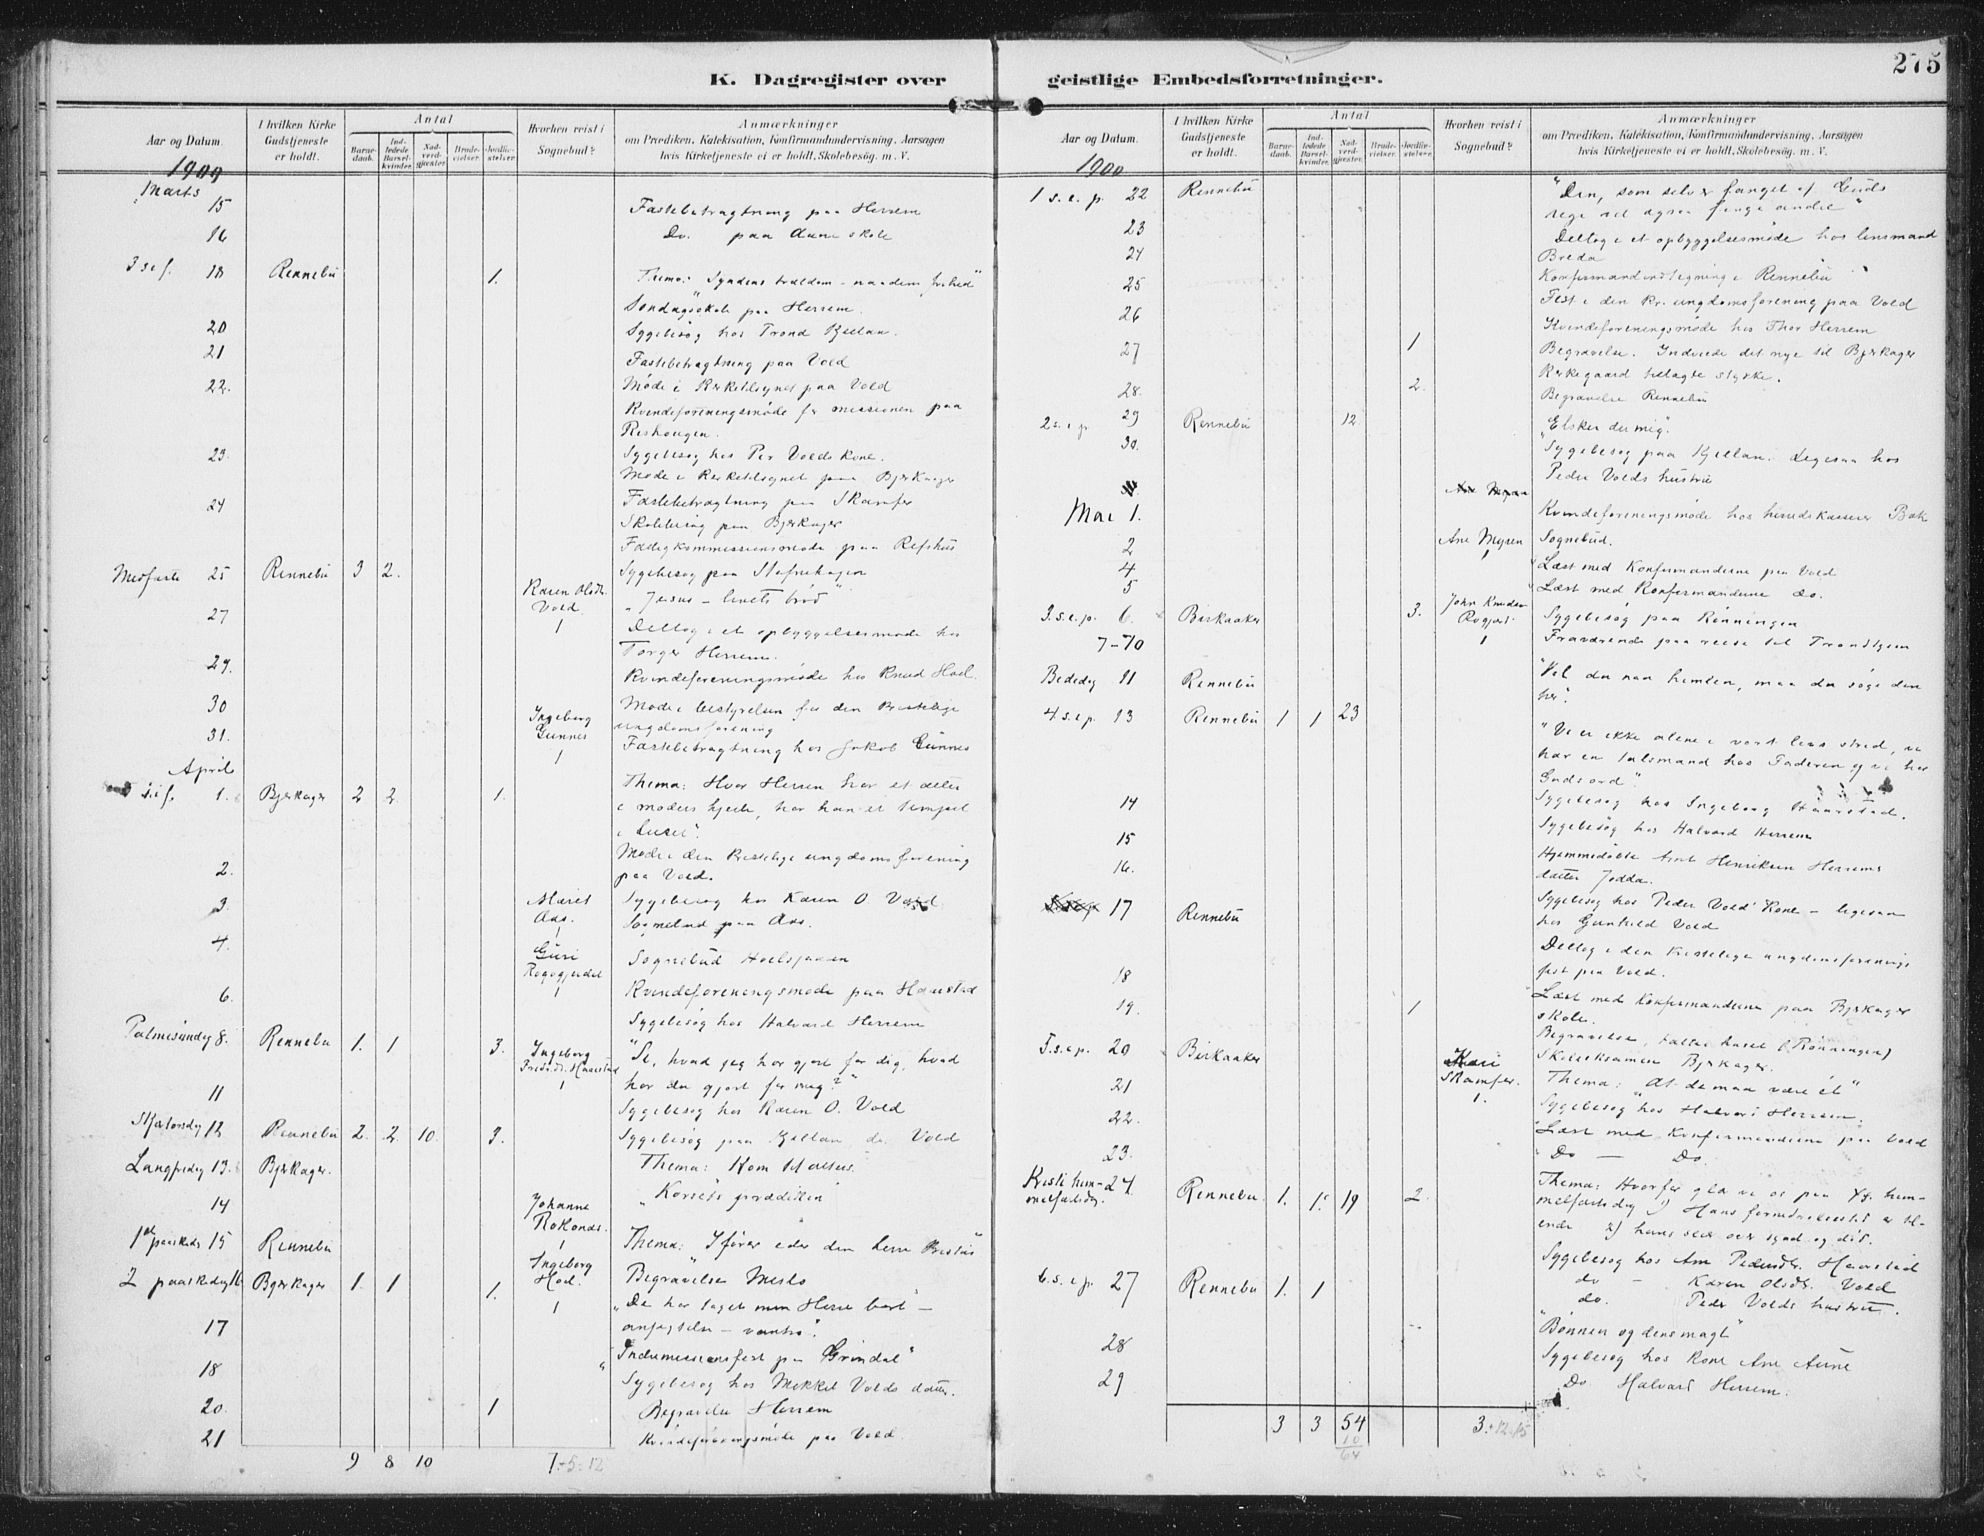 275
K. Dagregister over geistlige Embedsforretninger.
Aar og Datum. I hvilken Kirke Gudstjeneste er holdt. Antal Barnedaab. Indledede Barselkvinder. Nadverdgjester. Brudevielser. Jordfæstelser. Hvorhen reist i Sognebud? Anmærkninger
om Prædiken, Katekisation, Konfirmandundervisning, Aarsagen
hvis Kirketjeneste ei er holdt, Skolebesøg. m. V.
1900
Marts 15 Fastebetragtning paa Herrem
16 Do. paa Aune skole
3 s i f. 18 Rennebu 1. Thema: "Syndens trældom - naadens frihed"
Søndagsskole paa Herrem.
20 Sygebesøg hos Trond Kjellan.
21 Fastebetragtning paa Vold
22. Møde i Kirketilsynet paa Vold
Kvindeforeningsmøde for missionen paa
Reshaugen.
23. Sygebesøg hos Per Volds kone.
Møde i Kirketilsynet paa Bjerkager
24 Fastebetragtning paa Skamfer
Skolebesøg paa Bjerkager
Fattigkommissionsmøde paa Refshus
Midfaste 25 Rennebu 3 2. Karen Olsdt. Vold 1 Sygebesøg paa Stafnehagen
"Jesus - livets brød"
27 Deltog i et opbyggelsesmøde hos
Torger Herrem.
29. Kvindeforeningsmøde hos Knud Hoel.
30 Ingeborg Gunnes 1 Møde i bestyrelsen for den kristelige
ungdomsforening
31. Fastebetragtning hos Jakob Gunnes
April
1. Bjerkager 2 2 1. Thema: Hvor Herren har et alter
i moders hjerte, har han et tempel
i huset".
2. Møde i den kristelige ungdomsforening
paa Vold.
3. Marit Aas. 1 Sygebesøg hos Karen O. Vold
Sognebud paa Aas.
4. Guri 1 Sognebud
6. Kvindeforeningsmøde paa Haarstad
Sygebesøg hos Halvard Herrem
Palmesøndag 8. Rennebu 1. 1 3. Ingeborg Haarstad 1 "Se, hvad jeg har gjort for dig, hvad
har du gjort for mig?"
11 Sygebesøg hos Karen O. Vold
Skjærtorsdag 12 Rennebu 2. 2 10. 3. Sygebesøg paa Kjellan do Vold
Langfredag 13. Bjerkager. Thema:
14 Johanne 1 "Korsets prædiken
1ste paaskedag 15 Rennebu Thema: Ifører eder den herre Kristus"
2 paaskedag 16. Bjerkager 1. 1 1. Ingeborg Hoel. 1 Begravelse Meslo
"De har taget min Herre bort" -
anfægtelse - vantro".
17 "Indremissionsfest paa Grindal"
18 Sygebesøg hos Mikkel Volds datter.
20. 1 Begravelse Herrem
21 Kvindeforeningsmøde paa Vold.
9 8 10 7+5=12
Aar og Datum. I hvilken Kirke Gudstjeneste er holdt. Antal Barnedaab. Indledede Barselkvinder. Nadverdgjester. Brudevielser. Jordfæstelser. Hvorhen reist i Sognebud? Anmærkninger
om Prædiken, Katekisation, Konfirmandundervisning, Aarsagen
hvis Kirketjeneste ei er holdt, Skolebesøg. m. V.
1900
1 s. e. p. 22 Rennebu "Den, som selv er fanget af Guds
rige vil ogsaa fange andre"
23 Deltog i et opbyggelsesmøde hos lensmand
24 Breda
25 Konfirmandindtegning i Rennebu
Fest i den kr. ungdomsforening paa Vold
26 Kvindeforeningsmøde hos Thor Herrem
27 1 Begravelse. Indviede det nye til Bjerkager
Kirkegaard tillagte stykke.
28. 2. Begravelse Rennebu
2 s. e p. 29 Rennebu 12 "Elsker du mig".
30. Sygebesøg paa Kjellan. Ligesaa hos
Peder Volds hustru
Ane Myren
Mai 1. Kvindeforeningsmøde hos herredskasserer Bak
2 Ane Myren 1 Sognebud.
4 Læst med Konfirmanderne paa Vold
5 Læst med Konfirmanderne do.
3. s. e. p. 6. Birkaaker 3. John Knudsen 1 Sygebesøg paa Rønningen
7-10 Fraværende paa reise til Trondhjem
Bededag 11 Rennebu "Vil du naa himlen, maa du søge den
her".
4 s. e p. 13 Rennebu 1 1 23 "Vi er ikke alene i vort livs strid, vi
har en talsmand hos Faderen og vi har
Guds ord".
14 Sygebesøg hos Ingeborg Haarstad.
15 Sygebesøg hos Halvard Herrem
16. Hjemmedøbte Arnt Henriksen Herrems
datter Jodda.
17 Rennebu Sygebesøg hos Peder Volds Kone - ligesaa
hos Gunhild Vold
Deltog i den kristelige ungdomsforenings
18 fest paa Vold.
19. 1 Læst med Konfirmanderne paa Bjerkager
skole.
Begravelse, (Rønningen)
5. s. e p. 20 Birkaaker Kari Skamfer. 1. Skoleeksamen Bjerkager.
21 Thema: "At de maa være ét"
22. Sygebesøg hos Halvard Herrem.
Læst med Konfirmanderne paa Vold
23. Do - Do.
Kristi himmelfartsdag. 24. Rennebu. 1. 1. 19 2. Thema: Hvorfor glæ vi os paa Kr. himmelfartsdag 1) Hans fornedrelsestid er til-
ende 2) hans seier over synd og død.
Sygebesøg hos Ane Pedersdtr. Haarstad
do - Karen Olsdtr. Vold
6. s. e p. 27 Rennebu 1. 1 do. Peder Volds hustru.
"Bønnen og dens magt"
28 Sygebesøg hos kone Ane Aune
29 Do Halvard Herrem.
3 3 54 3.+12.15
10
64